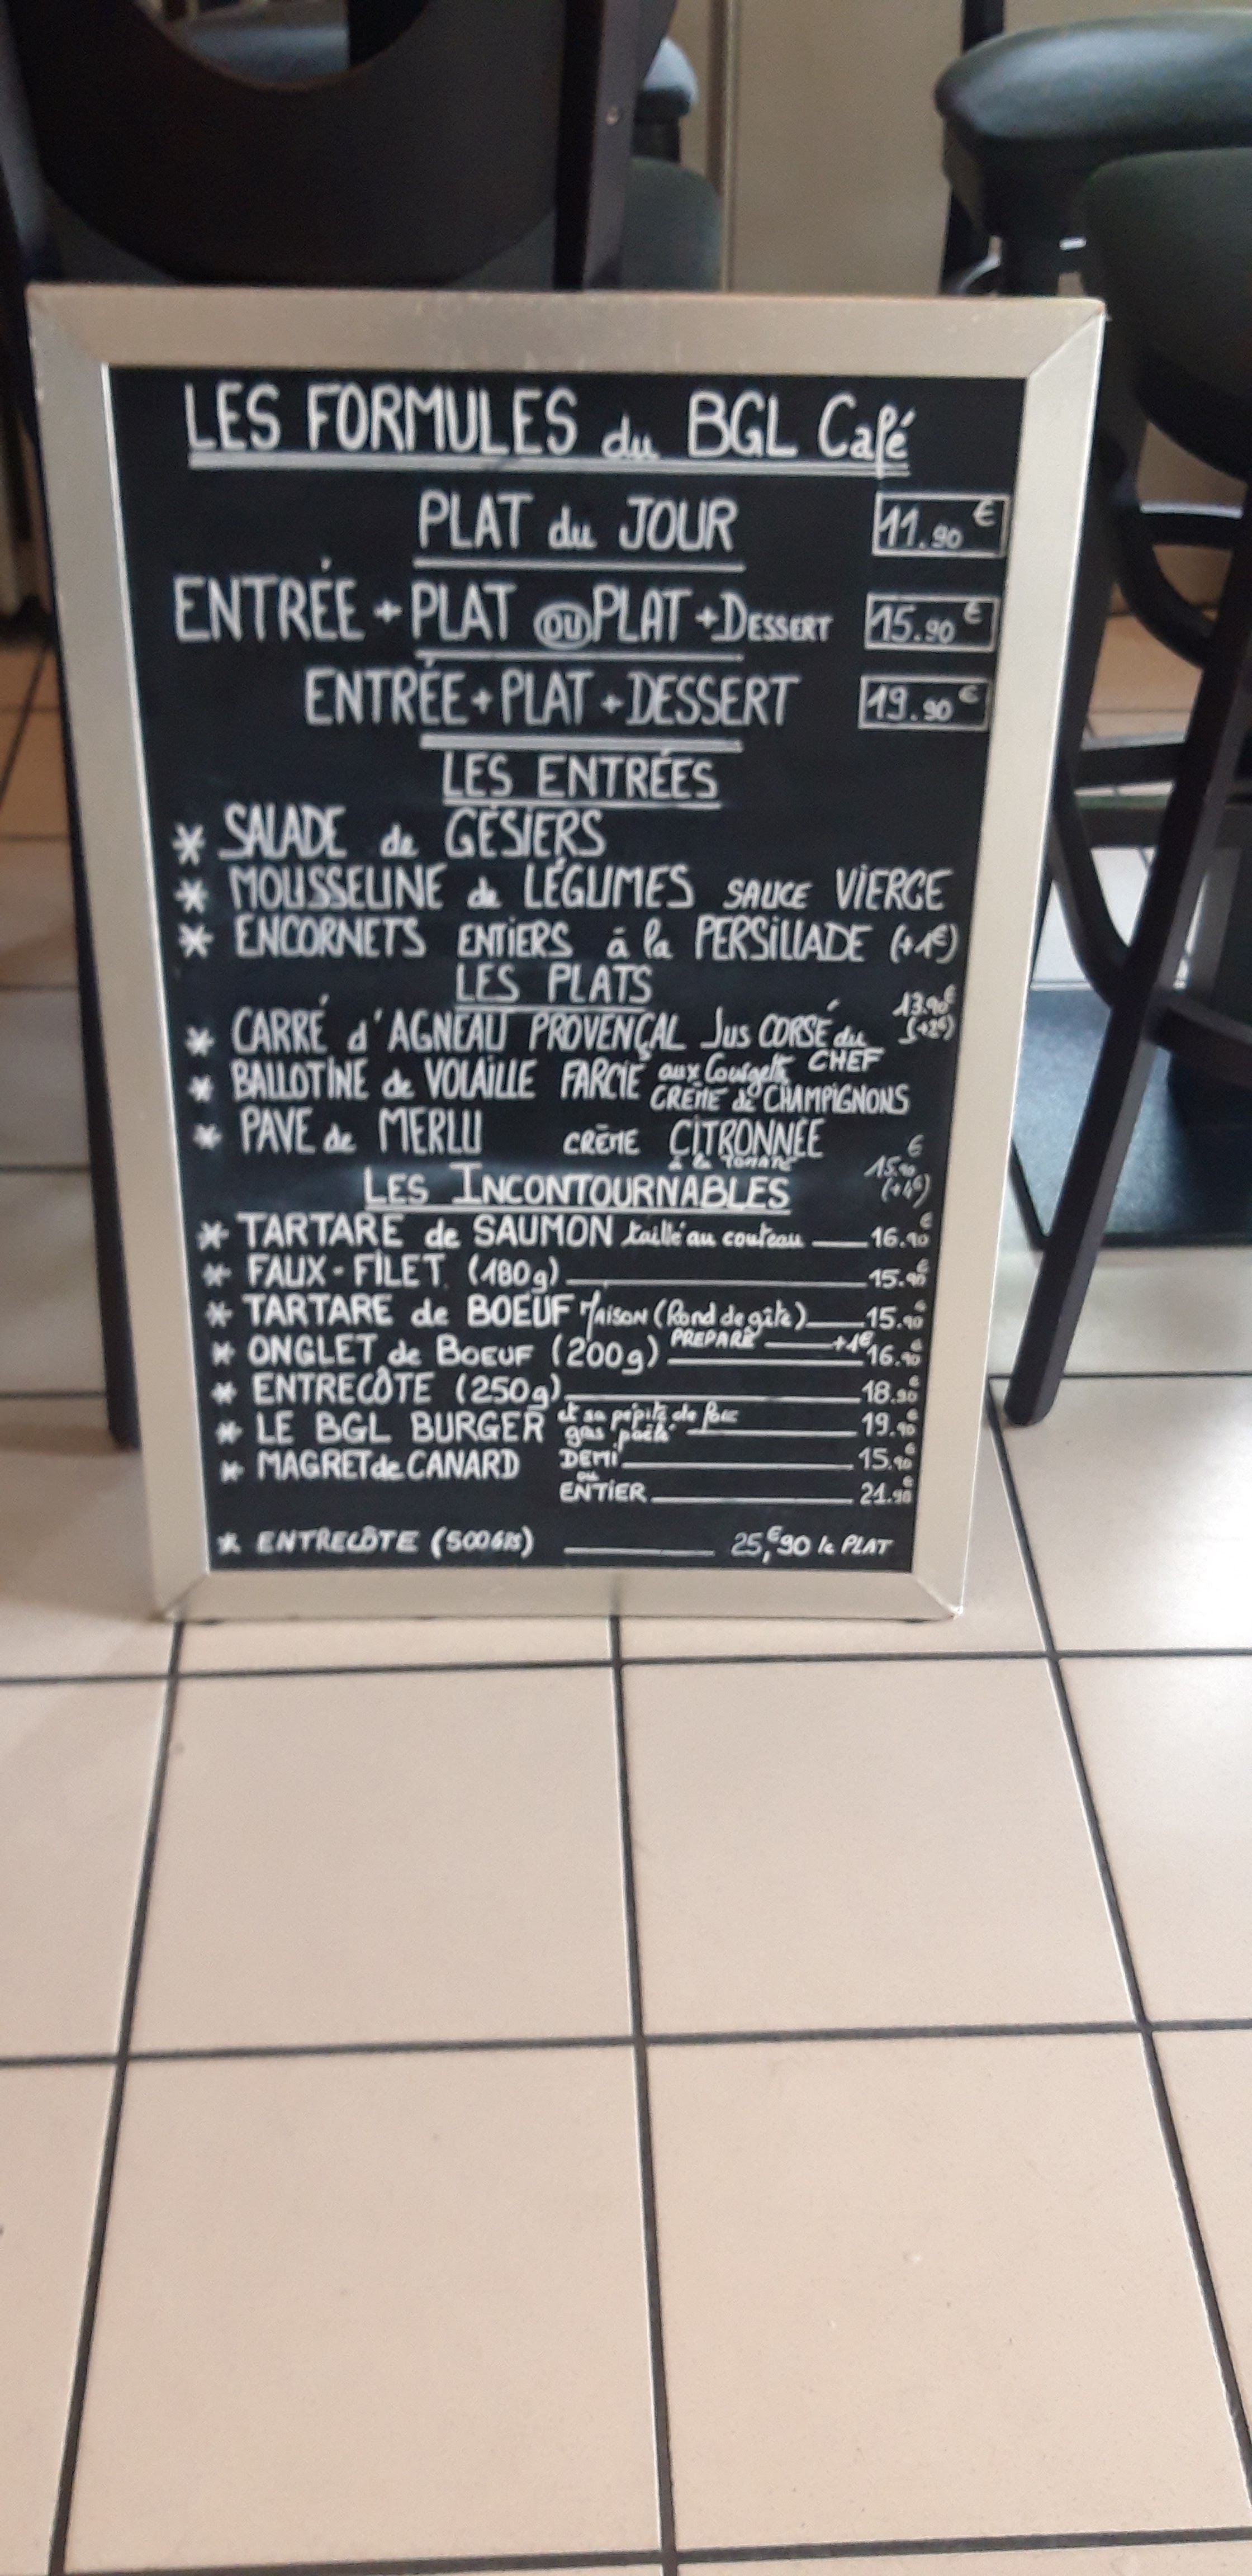 LES FORMULES du BGL Café
PLAT du JOUR 11.90€
ENTRÉE + PLAT OU PLAT + DESSERT 15.90€
ENTRÉE + PLAT + DESSERT 19.90€
LES ENTRÉES
* SALADE de GÉSIERS
* MOUSSELINE de LÉGUMES SAUCE VIERGE
* ENCORNETS ENTIERS à la PERSILLADE (+1€)
LES PLATS
13.90€
* CARRÉ d'AGNEAU PROVENÇAL Jus CORSÉ du (+2€)
CHEF
* BALLOTINE de VOLAILLE FARCIE aux
CRÈME de CHAMPIGNONS
* PAVE de MERLU CRÈME CITRONNÉE
à la TOMATE
15.90€
LES INCONTOURNABLES (+4€)
* TARTARE de SAUMON taillé au couteau 16.90€
* FAUX-FILET (180g) 15.90€
* TARTARE de BOEUF MAISON (Rond de gîte) 15.90€
PREPARÉ +1€
* ONGLET de BOEUF (200g) 16.90€
* ENTRECÔTE (250g) 18.90€
* LE BGL BURGER et sa pépite de foie 19.90€
gras poêlé
* MAGRET de CANARD DEMI 15.90€
ou
ENTIER 21.90€
* ENTRECÔTE (500GRS) 25,€90 le PLAT